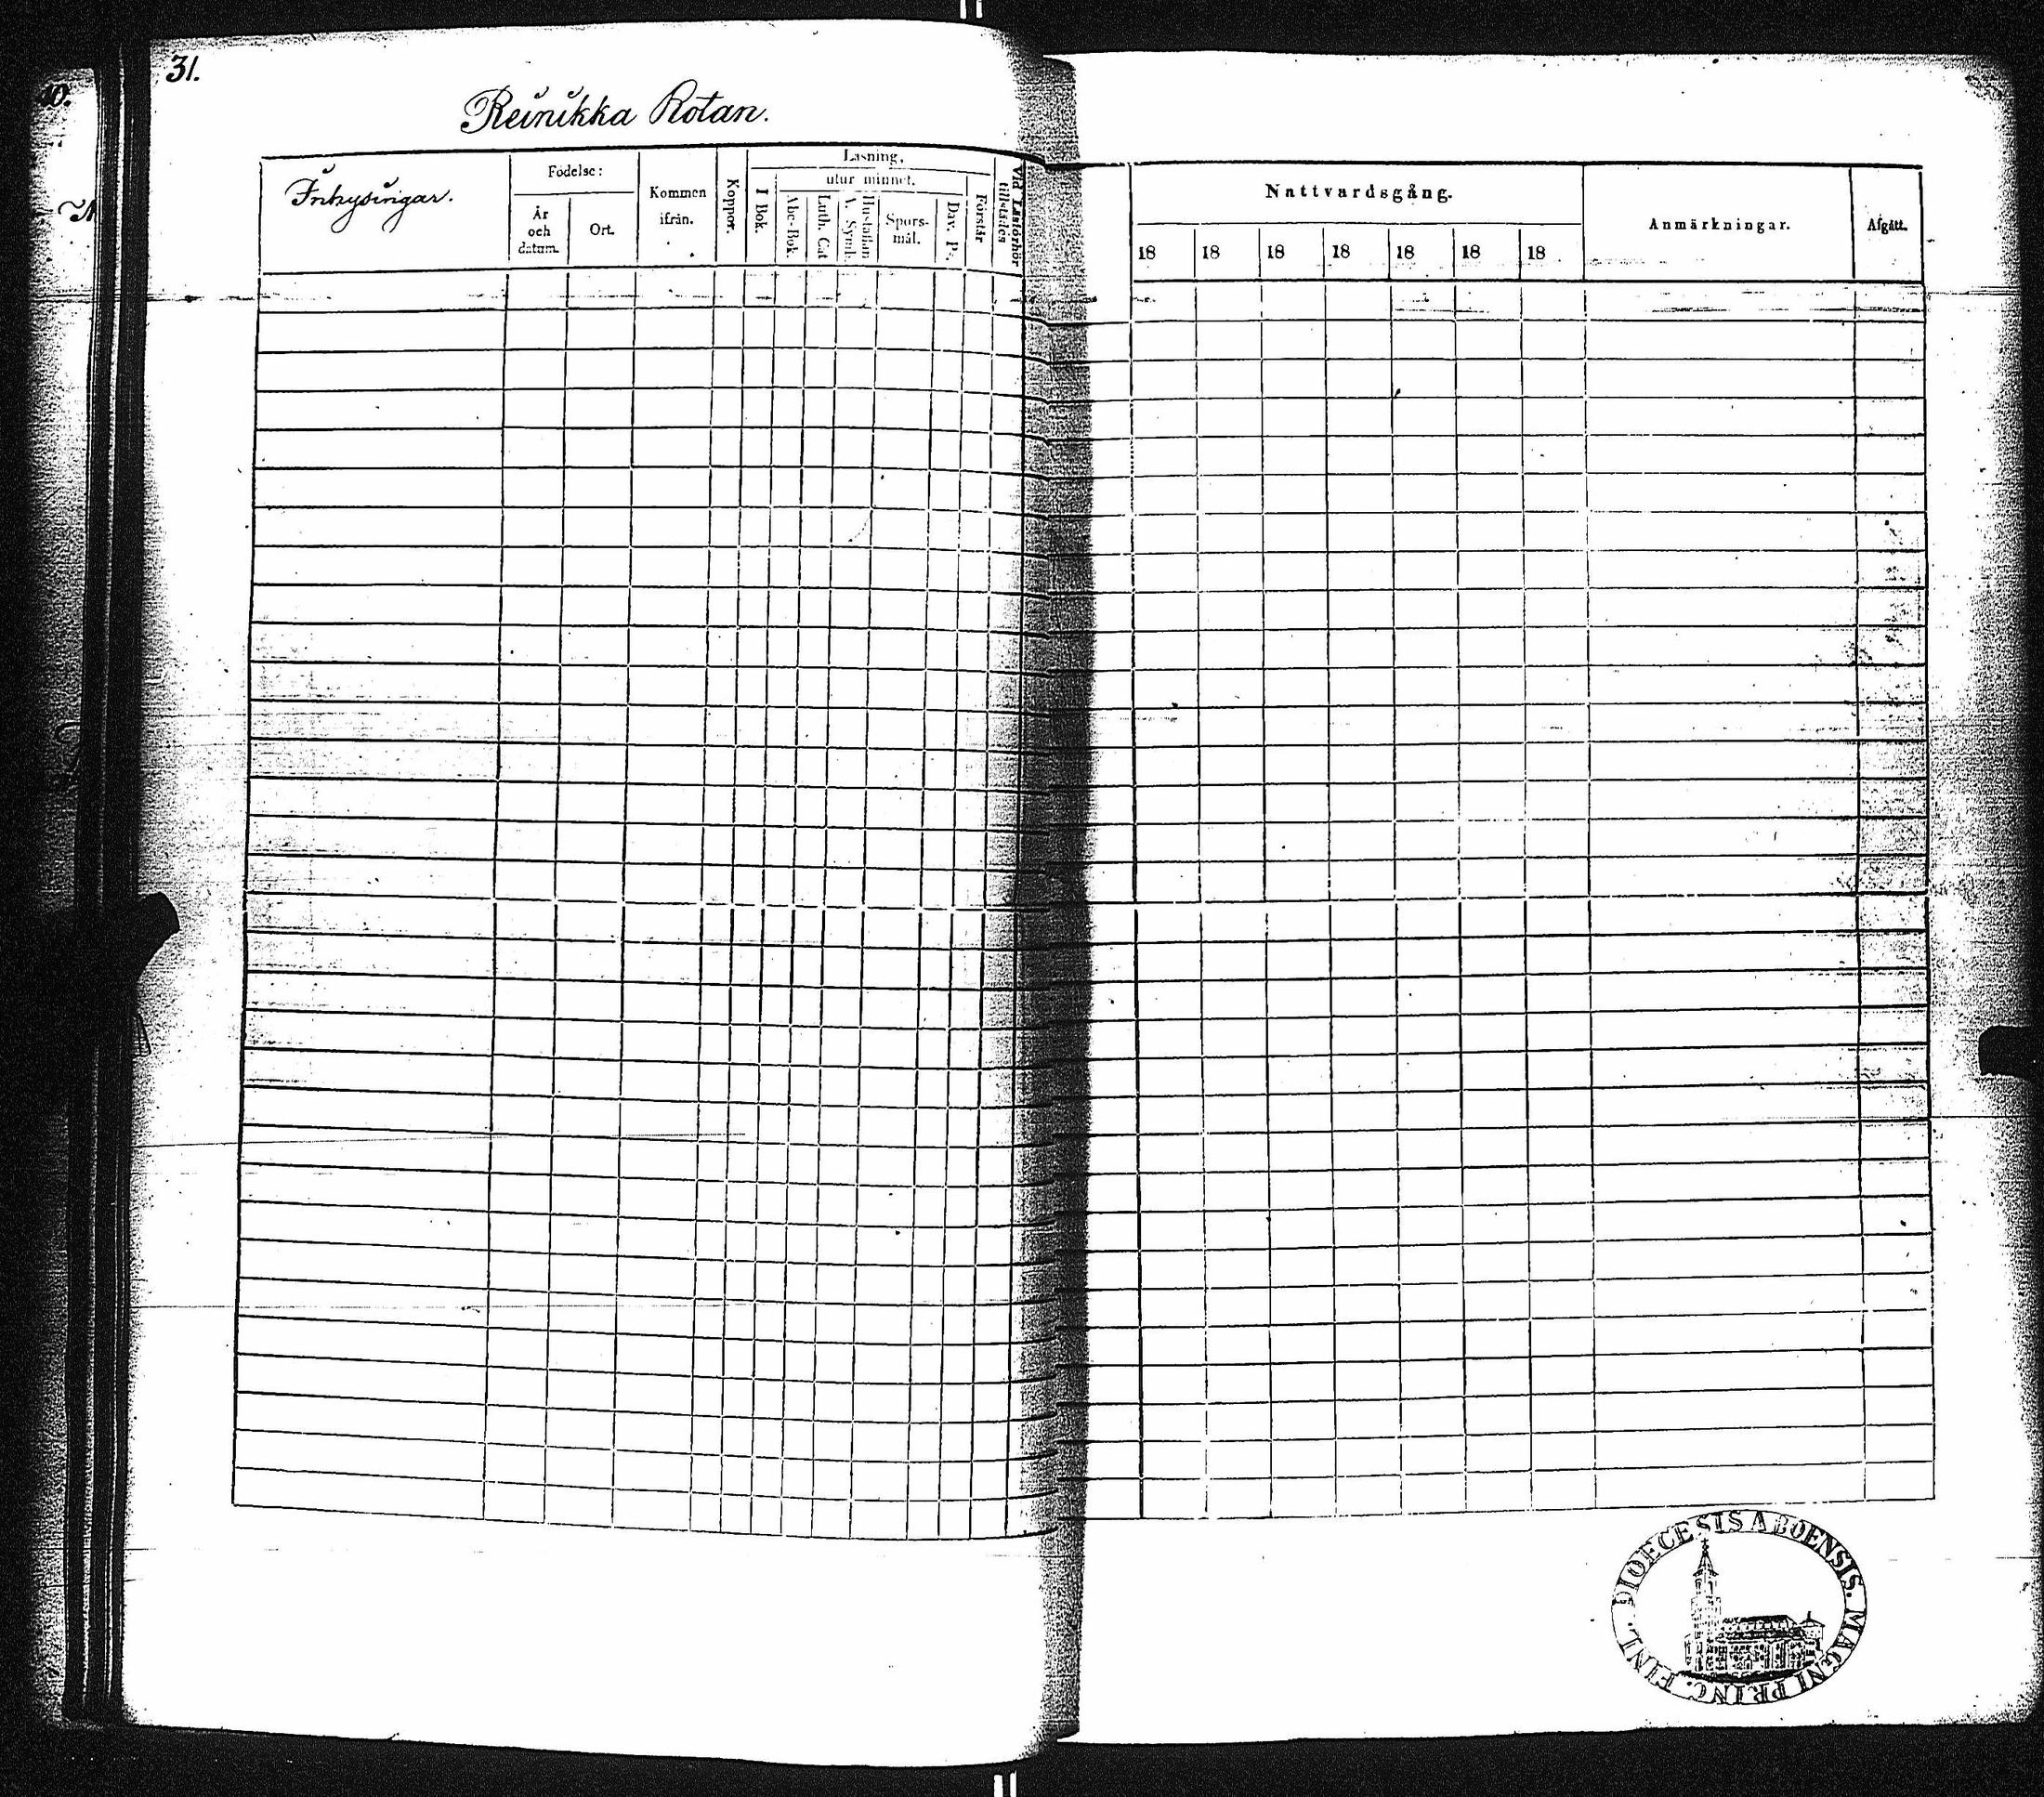 31.
Reinikka Rotan.
Inhysingar.
Födelse:
År och datum.
Ort.
Kommen ifrån.
Koppor.
Läsning,
I Bok.
utur minnet.
Abc-Bok.
Luth. Cat
Hustaflan A. Symb.
Spörs-mål.
Dav. Ps.
Förstår
Vid Läsförhör tillstädes
Nattvardsgång.
18 18 18 18 18 18 18
Anmärkningar.
Afgått.
DIOECESIS ABOENSIS. MAGNI PRINC. FINL.